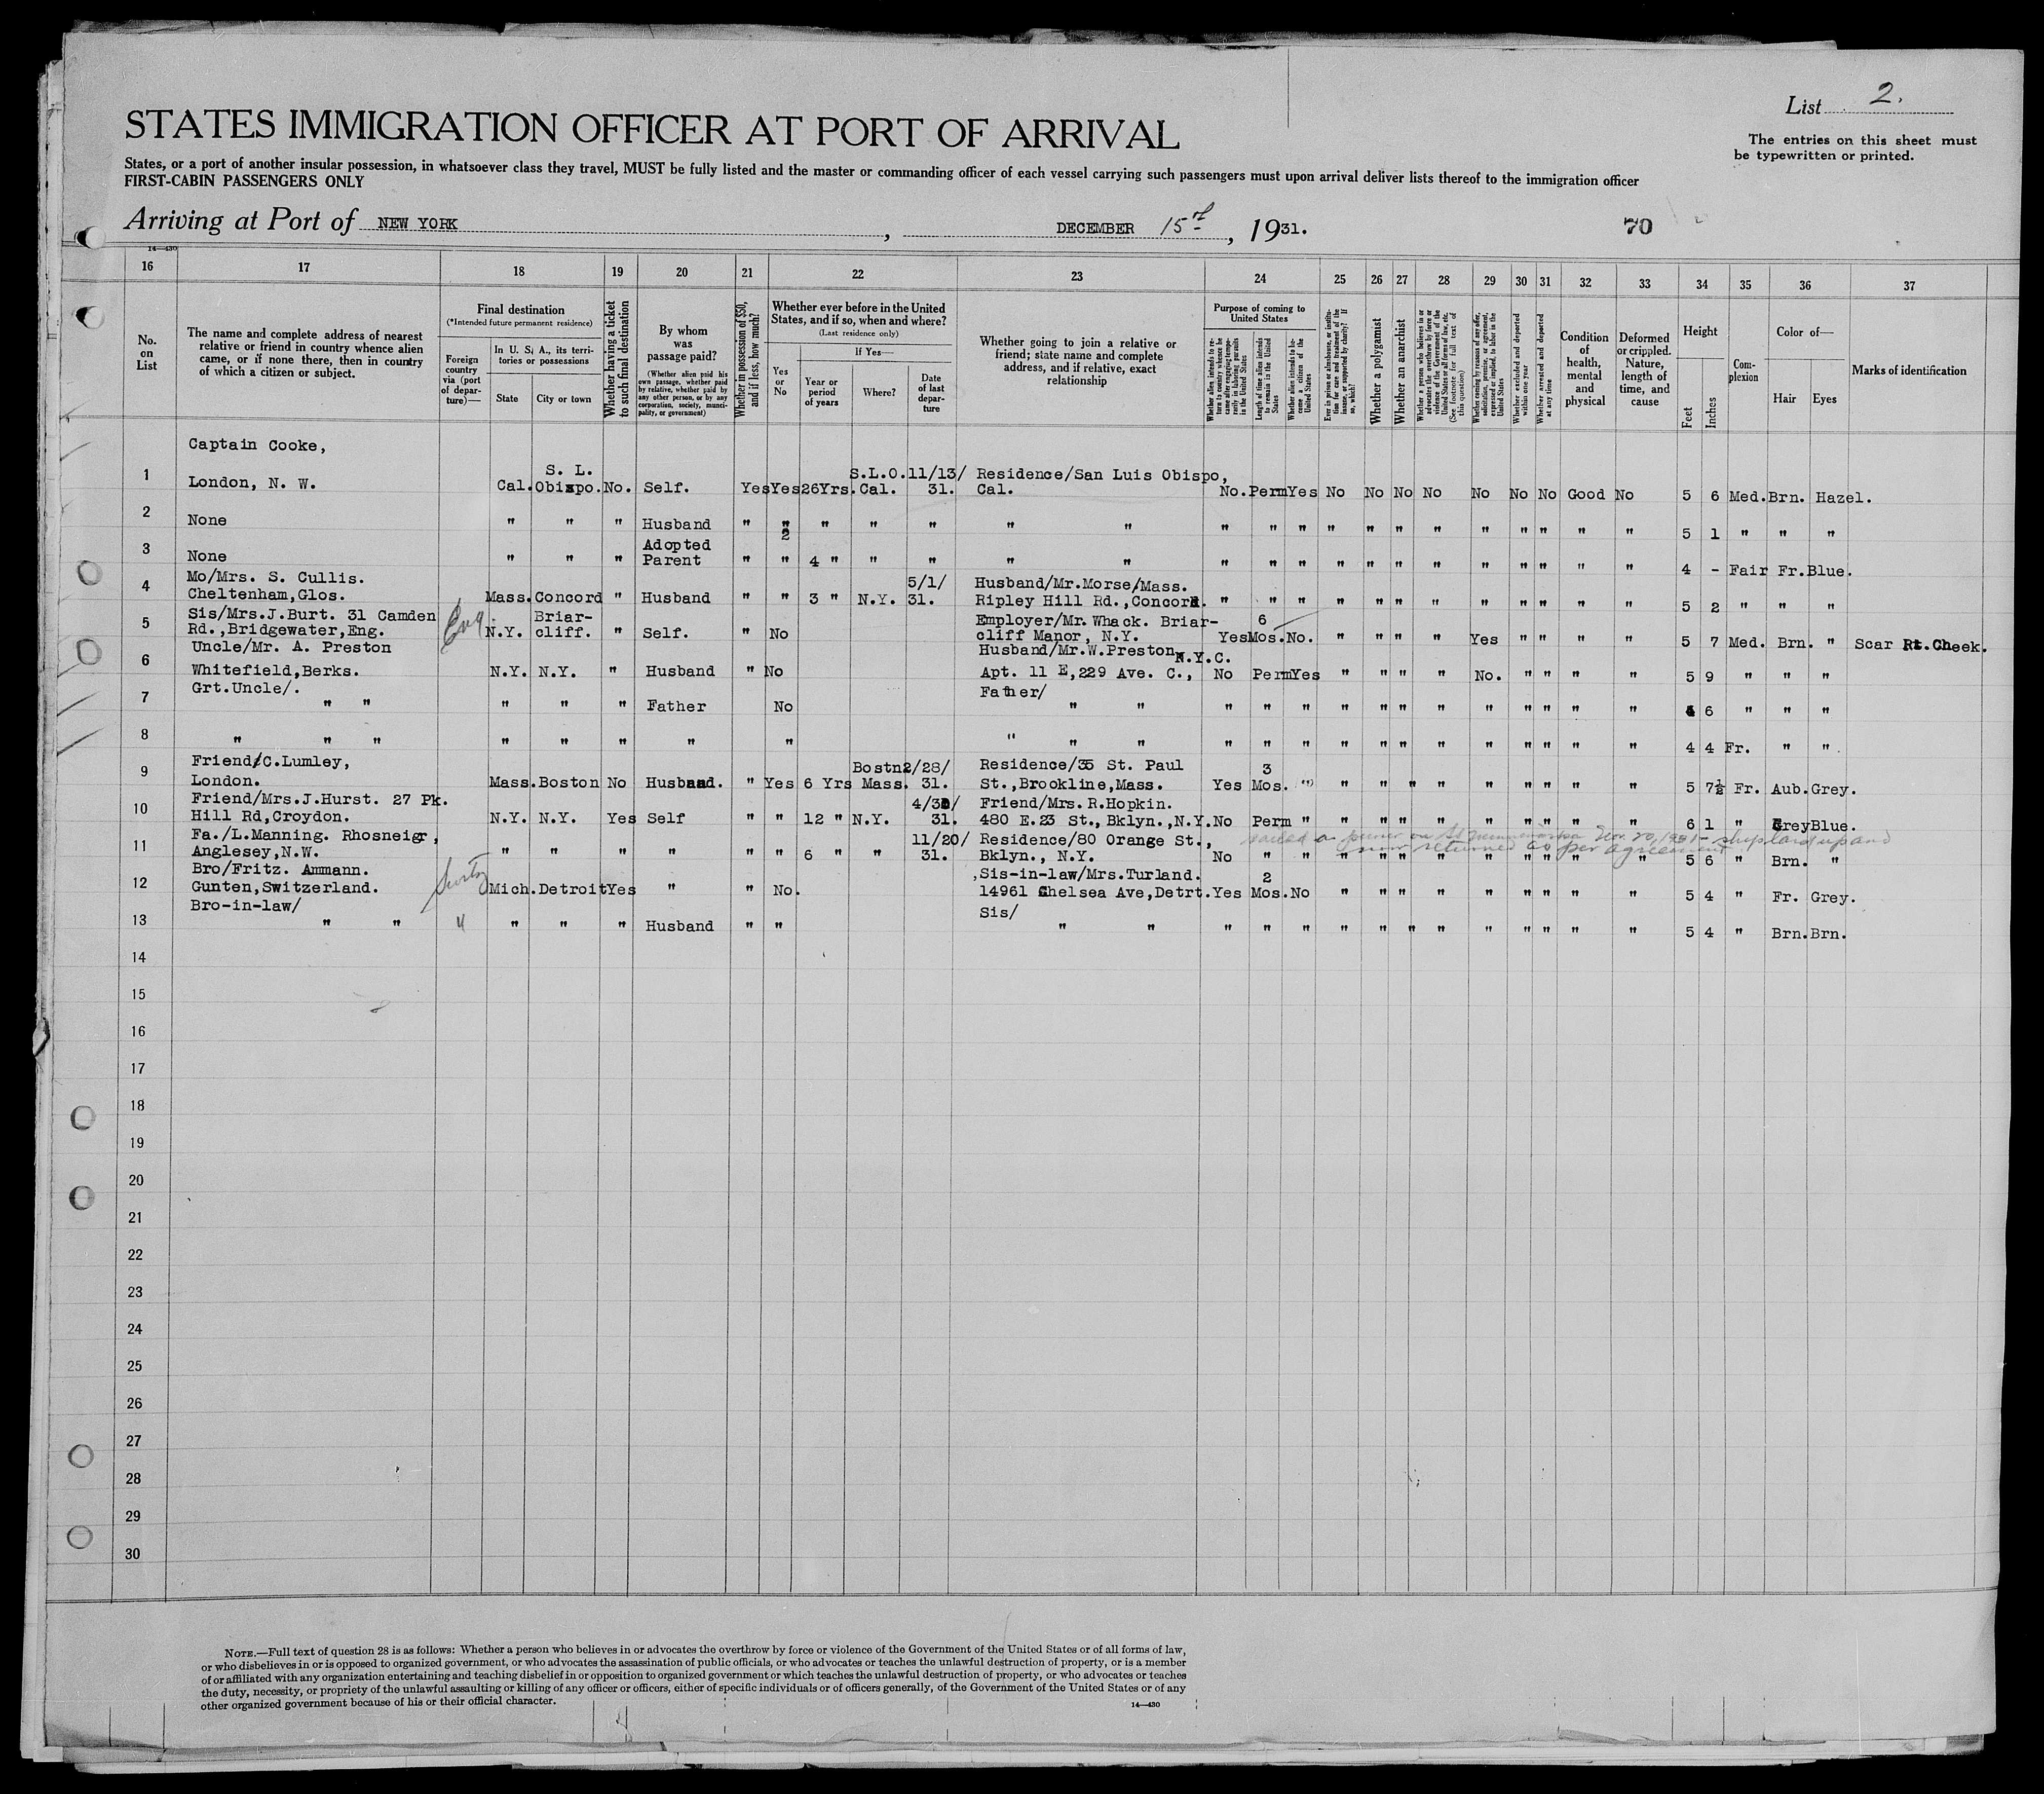 List 2.
STATES IMMIGRATION OFFICER AT PORT OF ARRIVAL
The entries on this sheet must
be typewritten or printed.
States, or a port of another insular possession, in whatsoever class they travel, MUST be fully listed and the master or commanding officer of each vessel carrying such passengers must upon arrival deliver lists thereof to the immigration officer
FIRST-CABIN PASSENGERS ONLY
Arriving at Port of NEW YORK, DECEMBER 15th, 1931.
70
14—430
16 17 18 19 20 21 22 23 24 25 26 27 28 29 30 31 32 33 34 35 36 37
No. on List
The name and complete address of nearest
relative or friend in country whence alien
came, or if none there, then in country
of which a citizen or subject.
Final destination
(*Intended future permanent residence)
Foreign country via (port of departure)—
In U. S. A., its territories or possessions
State
City or town
Whether having a ticket to such final destination
By whom was passage paid?
(Whether alien paid his own passage, whether paid by relative, whether paid by any other person, or by any corporation, society, municipality, or government)
Whether in possession of $50, and if less, how much?
Whether ever before in the United
States, and if so, when and where?
(Last residence only)
Yes or No
If Yes—
Year or period of years
Where?
Date of last departure
Whether going to join a relative or
friend; state name and complete
address, and if relative, exact
relationship
Purpose of coming to United States
Whether alien intends to return to country whence he came after engaging temporarily in laboring pursuits in the United States
Length of time alien intends to remain in the United States
Whether alien intends to become a citizen of the United States
Ever in prison or almshouse, or institution for care and treatment of the insane, or supported by charity? If so, which?
Whether a polygamist
Whether an anarchist
Whether a person who believes in or advocates the overthrow by force or violence of the Government of the United States or all forms of law, etc. (See footnote for full text of this question)
Whether coming by reason of any offer, solicitation, promise, or agreement, expressed or implied, to labor in the United States
Whether excluded and deported within one year
Whether arrested and deported at any time
Condition of health, mental and physical
Deformed or crippled. Nature, length of time, and cause
Height
Feet
Inches
Complexion
Color of—
Hair
Eyes
Marks of identification
Captain Cooke,
S. L. S.L.O. 11/13/ Residence/San Luis Obispo,
1 London, N. W. Cal. Obispo. No. Self. Yes Yes 26Yrs. Cal. 31. Cal. No. Perm Yes No No No No No No No Good No 5 6 Med. Brn. Hazel.
2 None " " " Husband " " " " " " " " " " " " " " " " " " " 5 1 " " "
2
Adopted
3 None " " " Parent " " 4 " " " " " " " " " " " " " " " " " 4 - Fair Fr. Blue.
Mo/Mrs. S. Cullis. 5/1/ Husband/Mr.Morse/Mass.
4 Cheltenham,Glos. Mass. Concord " Husband " " 3 " N.Y. 31. Ripley Hill Rd.,Concord. " " " " " " " " " " " " 5 2 " " "
Sis/Mrs.J.Burt. 31 Camden Briar- Employer/Mr. Whack. Briar- 6
5 Rd.,Bridgewater,Eng. Eng. N.Y. cliff. " Self. " No cliff Manor, N.Y. Yes Mos. No. " " " " Yes " " " " 5 7 Med. Brn. " Scar Rt. Cheek.
Uncle/Mr. A. Preston Husband/Mr.W.Preston N.Y.C.
6 Whitefield,Berks. N.Y. N.Y. " Husband " No Apt. 11 E,229 Ave. C., No Perm Yes " " " " No. " " " " 5 9 " " "
Grt.Uncle/. Father/
7 " " " " " Father No " " " " " " " " " " " " " " 6 " " "
8 " " " " " " " " " " " " " " " " " " " " " " " " 4 4 Fr. " "
Friend/C.Lumley, Bostn 2/28/ Residence/35 St. Paul 3
9 London. Mass. Boston No Husband. " Yes 6 Yrs Mass. 31. St.,Brookline,Mass. Yes Mos. " " " " " " " " " " 5 7½ Fr. Aub. Grey.
Friend/Mrs.J.Hurst. 27 Pk. Friend/Mrs. R.Hopkin.
10 Hill Rd,Croydon. N.Y. N.Y. Yes Self " " 12 " N.Y. 31. 480 E.23 St., Bklyn.,N.Y. No Perm " " " " " " " " " " 6 1 " Grey Blue.
Fa./L.Manning. Rhosneigr, 11/20/ Residence/80 Orange St.,
now returned as per agreement
11 Anglesey,N.W. " " " " " " 6 " " 31. Bklyn., N.Y. No " " " " " " " " " " " " 5 6 " Brn. "
Bro/Fritz. Ammann. Sis-in-law/Mrs.Turland. 2
12 Gunten,Switzerland. Mich. Detroit Yes " " No. 14961 Chelsea Ave,Detrt. Yes Mos. No " " " " " " " " " 5 4 " Fr. Grey.
Bro-in-law/ Sis/
13 " " " " " Husband " " " " " " " " " " " " " " " " 5 4 " Brn. Brn.
14
15
16
17
18
19
20
21
22
23
24
25
26
27
28
29
30
NOTE.—Full text of question 28 is as follows: Whether a person who believes in or advocates the overthrow by force or violence of the Government of the United States or of all forms of law,
or who disbelieves in or is opposed to organized government, or who advocates the assassination of public officials, or who advocates or teaches the unlawful destruction of property, or is a member
of or affiliated with any organization entertaining and teaching disbelief in or opposition to organized government or which teaches the unlawful destruction of property, or who advocates or teaches
the duty, necessity, or propriety of the unlawful assaulting or killing of any officer or officers, either of specific individuals or of officers generally, of the Government of the United States or of any
other organized government because of his or their official character.
14—430